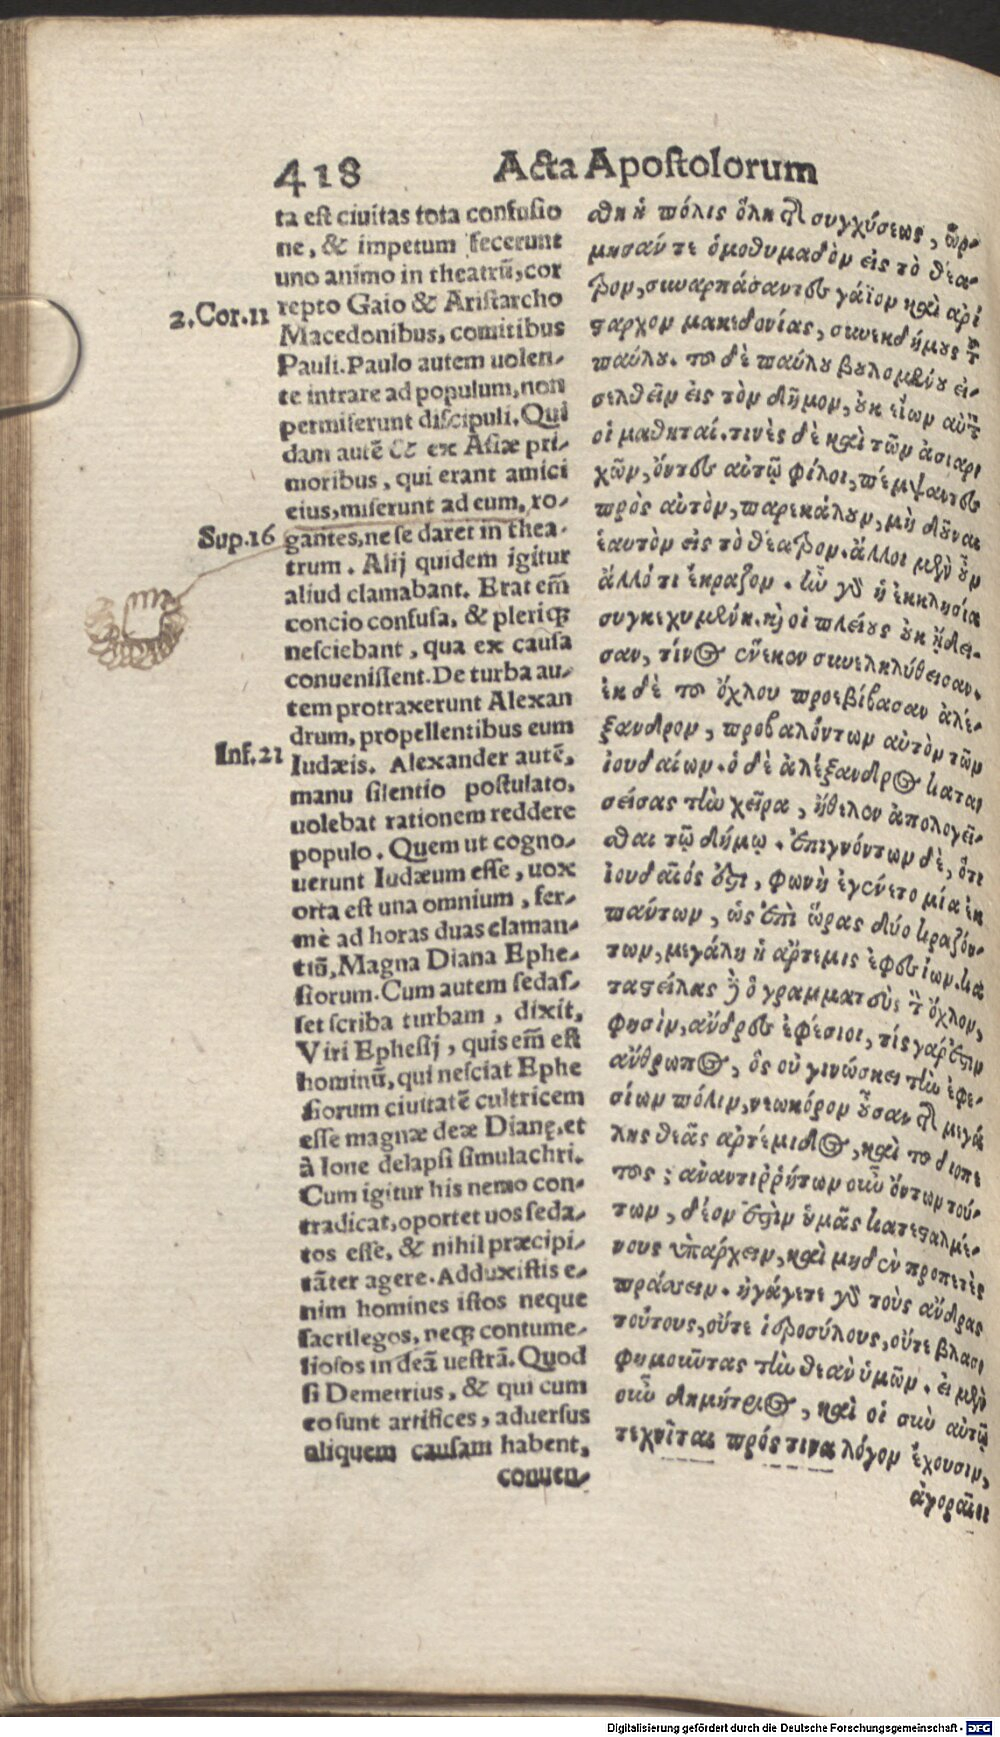 418 Acta Apostolorum
ta est ciuitas tota confusio
ne, & impetum fecerunt
uno animo in theatrũ, cor
repto Gaio & Aristarcho
2.Cor.11
Macedonibus, comitibus
Pauli. Paulo autem uolen-
te intrare ad populum, non
permiserunt discipuli. Qui
dam autẽ & ex Asiæ pri-
moribus, qui erant amici
eius, miserunt ad eum, ro-
Sup.16
gantes, ne se daret in thea-
trum. Alij quidem igitur
aliud clamabant. Erat em̃
concio confusa, & pleriq;
nesciebant, qua ex causa
conuenissent. De turba au-
tem protraxerunt Alexan
drum, propellentibus eum
Inf.21
Iudæis. Alexander autẽ,
manu silentio postulato,
uolebat rationem reddere
populo. Quem ut cogno-
uerunt Iudæum esse, uox
orta est una omnium, fer-
mè ad horas duas claman-
tiũ, Magna Diana Ephe-
siorum. Cum autem sedas-
set scriba turbam, dixit,
Viri Ephesij, quis em̃ est
hominũ, qui nesciat Ephe
siorum ciuitatẽ cultricem
esse magnæ deæ Dianę, et
à Ioue delapsi simulachri.
Cum igitur his nemo con-
tradicat, oportet uos seda-
tos esse, & nihil præcipi-
tãter agere. Adduxistis e-
nim homines istos neque
sacrilegos, neq; contume-
liosos in deã uestrã. Quod
si Demetrius, & qui cum
eo sunt artifices, aduersus
aliquem causam habent,
conuen-
θη ἡ πόλις ὅλη τῆ συγχύσεως, ὥρ-
μησάν τε ὁμοθυμαδὸν εἰς τὸ θέα-
τρον, συναρπάσαντες γάϊον καὶ ἀρί
σταρχον μακεδονίας, συνεκδήμους τ
παύλου. τοῦ δὲ παύλου βουλομένου εἰ-
σελθεῖν εἰς τὸν δῆμον, οὐκ εἴων αὐτ
οἱ μαθηταί. τινὲς δὲ καὶ τῶν ἀσιαρ
χῶν, ὄντες αὐτῷ φίλοι, πέμψαντες
πρὸς αὐτὸν, παρεκάλουν, μὴ δοῦναι
ἑαυτὸν εἰς τὸ θέατρον. ἄλλοι μὲν οὖν
ἄλλό τι ἔκραζον. ἦν γὰρ ἡ ἐκκλησία
συγκεχυμένη. καὶ οἱ πλείους οὐκ ᾔδει-
σαν, τίνος ἕνεκον συνεληλύθεισαν.
ἐκ δὲ τοῦ ὄχλου προεβίβασαν ἀλέ-
ξανδρον, προβαλόντων αὐτὸν τῶν
ἰουδαίων. ὁ δὲ ἀλέξανδρος κατα
σείσας τὴν χεῖρα, ἤθελον ἀπολογεῖ-
σθαι τῷ δήμῳ. ἐπιγνόντων δὲ, ὅτι
ἰουδαῖός ἐστι, φωνὴ ἐγένετο μία ἐκ
πάντων, ὡς ἐπὶ ὥρας δύο κραζόν-
των, μεγάλη ἡ ἄρτεμις ἐφεσίων. κα
ταστείλας δὲ ὁ γραμματεὺς τ ὄχλον,
φησὶν, ἄνδρες ἐφέσιοι, τίς γάρ ἐστιν
ἄνθρωπος, ὃς οὐ γινώσκει τὴν ἐφε-
σίων πόλιν, νεωκόρον οὖσαν τῆ μεγά
λης θεᾶς ἀρτέμιδος, καὶ τοῦ διοπε
τοῦς; ἀναντιῤῥήτων οὖν ὄντων τού-
των, δέον ἐστὶν ὑμᾶς κατεσταλμέ-
νους ὑπάρχειν, καὶ μηδὲν προπετὲς
πράσσειν. ἠγάγετε γὰρ τοὺς ἄνδρας
τούτους, οὔτε ἱεροσύλους, οὔτε βλασ
φημοῦντας τὴν θεὰν ὑμῶν. εἰ μὲν
οὖν δημήτριος, καὶ οἱ σὺν αὐτῷ
τεχνῖται πρός τινα λόγον ἔχουσιν,
ἀγοραῖοι
Digitalisierung gefördert durch die Deutsche Forschungsgemeinschaft - DFG